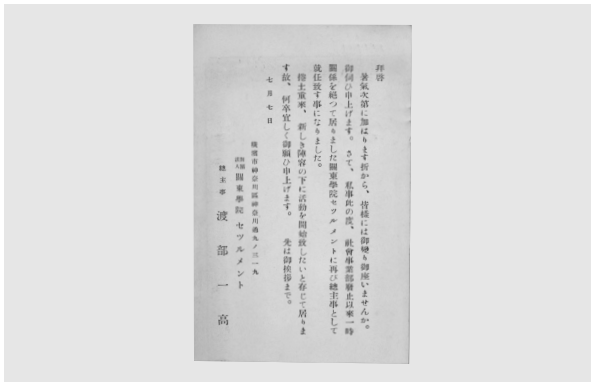 拜啓
暑氣次第に加はります折から、皆樣には御變り御座いませんか。
御伺ひ申上げます。さて、私事此の度、社會事業部廢止以來一時
關係を絕つて居りました關東學院セツルメントに再び總主事として
就任致す事になりました。
捲土重來、新しき陣容の下に活動を開始致したいと存じて居りま
す故、何卒宜しく御願ひ申上げます。　先は御挨拶まで。
七月七日
橫濱市神奈川區神奈川通九ノ三一九
財團法人 關東學院セツルメント
總主事 渡部一高